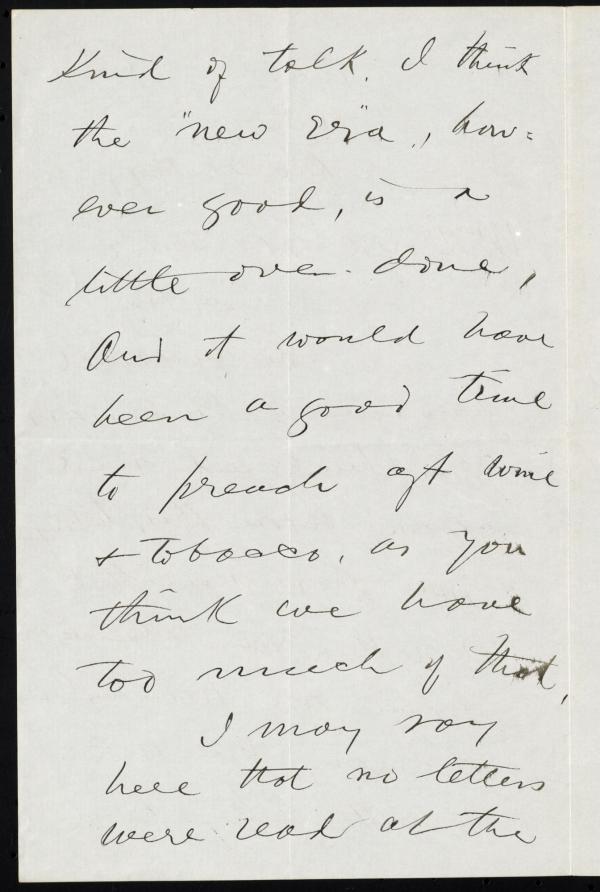 kind of talk. I think
the "new Era", how=
ever good, is a
little over-done,
And it would have
been a good time
to preach agt wine
& Tobacco, as you
think we have
too much of that,
I may say
here that no letters
were read at the